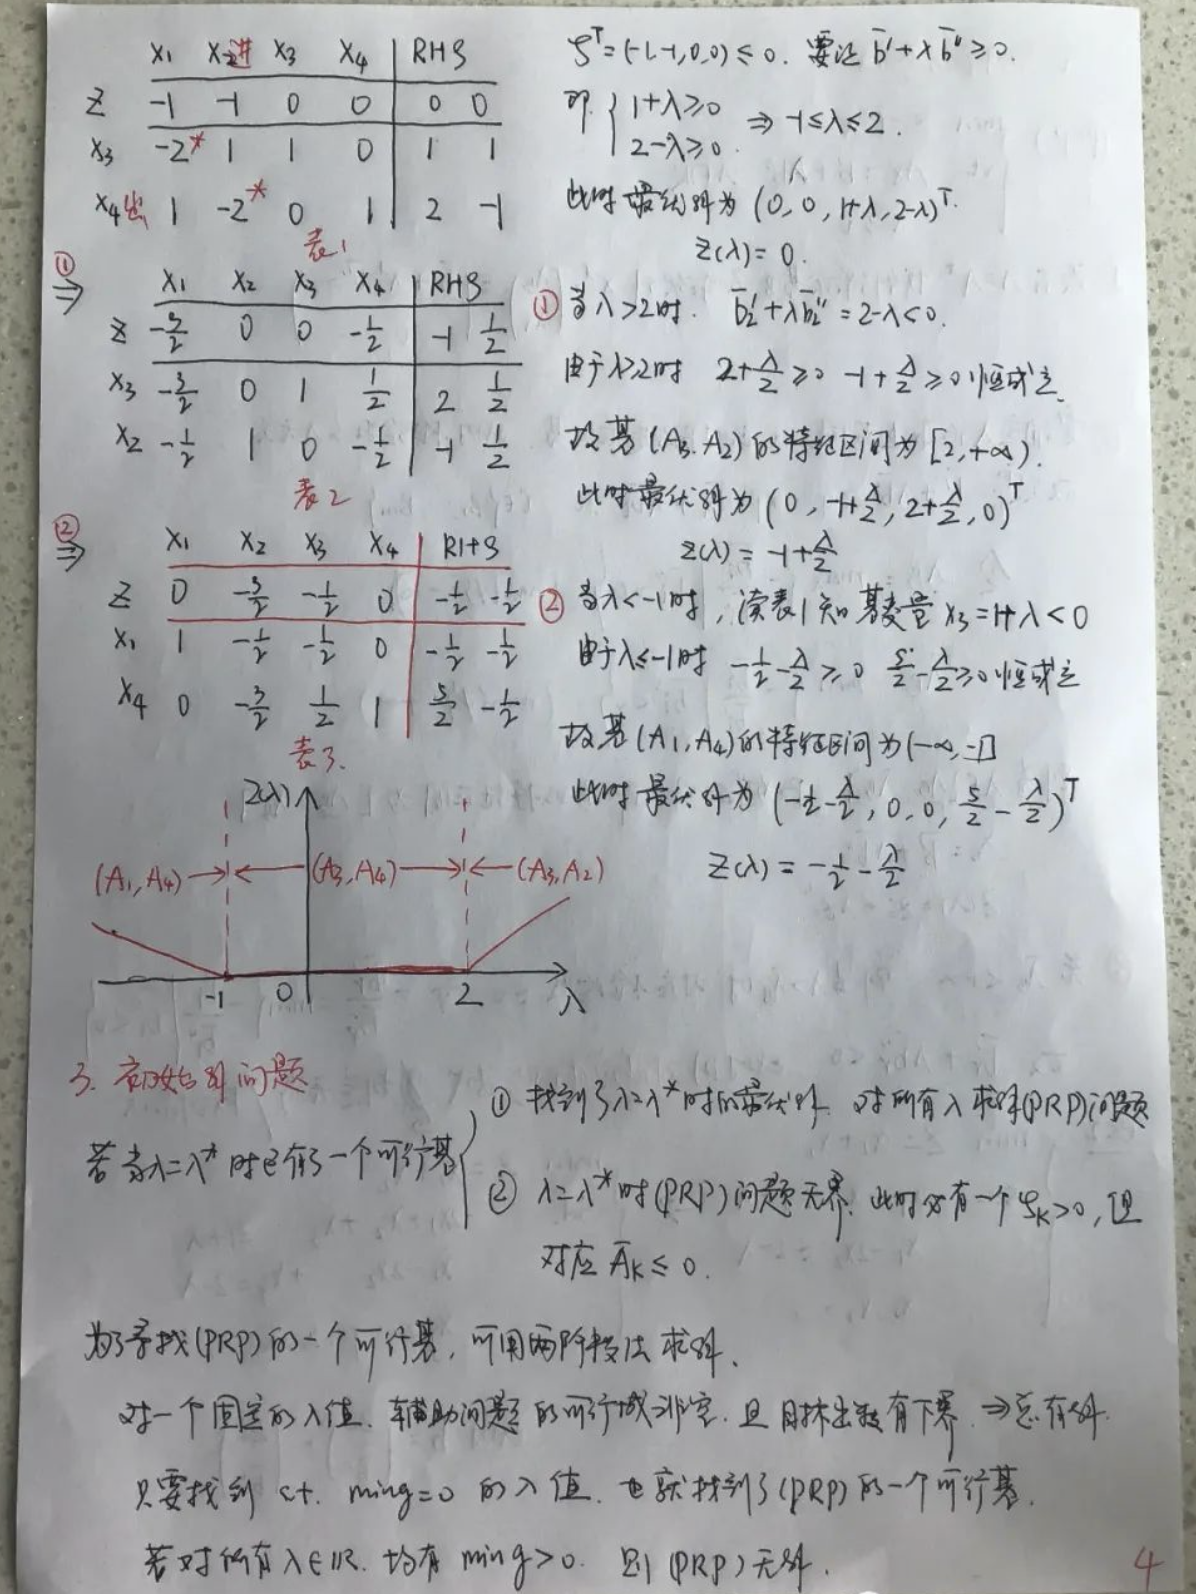 x₁ x₂进 x₃ x₄ RHS
z -1 -1 0 0 0 0
x₃ -2* 1 1 0 1 1
x₄出 1 -2* 0 1 2 -1
表1
ζᵀ=(-1,-1,0,0)≤0. 要让 b̄'+λb̄''≥0.
即 { 1+λ≥0 2-λ≥0. ⇒ -1≤λ≤2.
此时最优解为 (0, 0, 1+λ, 2-λ)ᵀ.
z(λ)=0.
① ⇒
x₁ x₂ x₃ x₄ RHS
z -3/2 0 0 -1/2 -1 1/2
x₃ -3/2 0 1 1/2 2 1/2
x₂ -1/2 1 0 -1/2 -1 1/2
表2
① 当λ>2时. b̄₂'+λb̄₂''=2-λ<0.
由于λ≥2时 2+λ/2≥0 -1+λ/2≥0恒成立.
故基(A₃,A₂)的特征区间为[2,+∞).
此时最优解为 (0, -1+λ/2, 2+λ/2, 0)ᵀ
z(λ)=-1+λ/2
② ⇒
x₁ x₂ x₃ x₄ RHS
z 0 -3/2 -1/2 0 -1/2 -1/2
x₁ 1 -1/2 -1/2 0 -1/2 -1/2
x₄ 0 -3/2 1/2 1 5/2 -1/2
表3.
② 当λ<-1时, 读表1知 基变量 x₃=1+λ<0
由于λ≤-1时 -1/2-λ/2≥0 5/2-λ/2≥0恒成立
故基(A₁,A₄)的特征区间为(-∞,-1]
此时最优解为 (-1/2-λ/2, 0, 0, 5/2-λ/2)ᵀ
z(λ)=-1/2-λ/2
z(λ)
(A₁,A₄) (A₃,A₄) (A₃,A₂)
-1 0 2 λ
3. 初始解问题
若当λ=λ*时已有了一个可行基
① 找到了λ=λ*时的最优解. 对所有λ求解(PRP)问题
② λ=λ*时(PRP)问题无界. 此时必有一个ζₖ>0, 但
对应 Āₖ≤0.
为了寻找(PRP)的一个可行基, 可用两阶段法求解.
对一个固定的λ值. 辅助问题的可行域非空. 且目标函数有下界. ⇒总有解.
只要找到 s.t. min g=0 的λ值. 也就找到了(PRP)的一个可行基.
若对所有λ∈ℝ. 均有 min g>0. 则(PRP)无解.
4